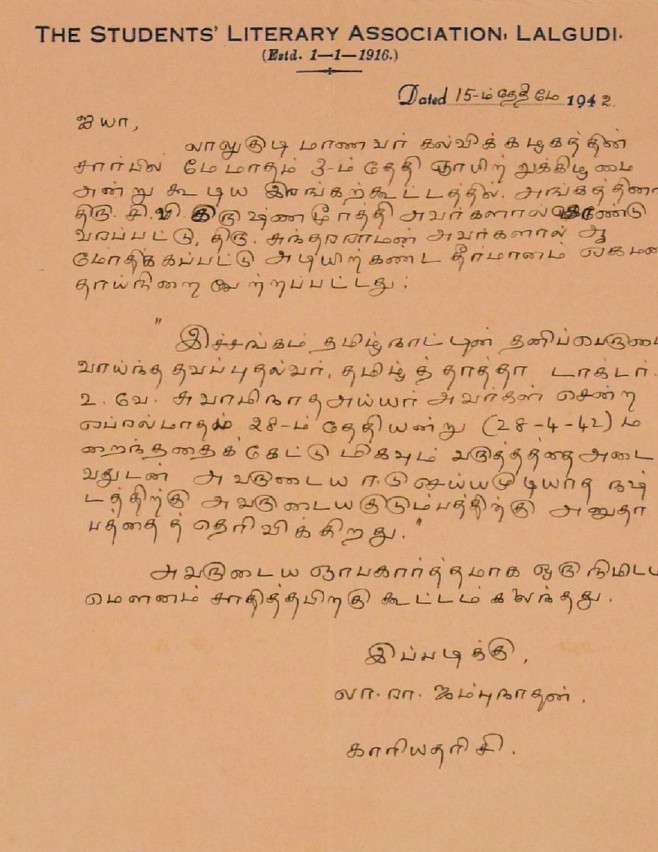 THE STUDENTS' LITERARY ASSOCIATION, LALGUDI.
(Estd. 1—1—1916.)
Dated 15-ம்தேதி மே 1942.
ஐயா,
லாலுகுடி மாணவர் கல்விக் கழகத்தின்
சார்பில் மே மாதம் 3-ம் தேதி ஞாயிற்றுக்கிழமை
அன்று கூடிய இரங்கற்கூட்டத்தில். அங்கத்தினர்
திரு. சி. வி. கிருஷ்ணமூர்த்தி அவர்களால் கொண்டு
வரப்பட்டு, திரு. சுந்தரராமன் அவர்களால் ஆ
மோதிக்கப்பட்டு அடியிற்கண்ட தீர்மானம் ஏகமன
தாய் நிறைவேற்றப்பட்டது:
"இச்சங்கம் தமிழ்நாட்டின் தனிப்பெருமை
வாய்ந்த தவப்புதல்வர், தமிழ்த் தாத்தா டாக்டர்.
உ. வே. சுவாமிநாதஅய்யர் அவர்கள் சென்ற
ஏப்ரல்மாதம் 28-ம் தேதியன்று (28-4-42) ம
றைந்ததைக் கேட்டு மிகவும் வருத்தத்தை அடை
வதுடன் அவருடைய ஈடுசெய்யமுடியாத நஷ்
டத்திற்கு அவருடைய குடும்பத்திற்கு அனுதா
பத்தைத் தெரிவிக்கிறது."
அவருடைய ஞாபகார்த்தமாக ஒரு நிமிடம்
மௌனம் சாதித்தபிறகு கூட்டம் கலைந்தது.
இப்படிக்கு,
லா. ரா. ஜம்புநாதன்.
காரியதரிசி.